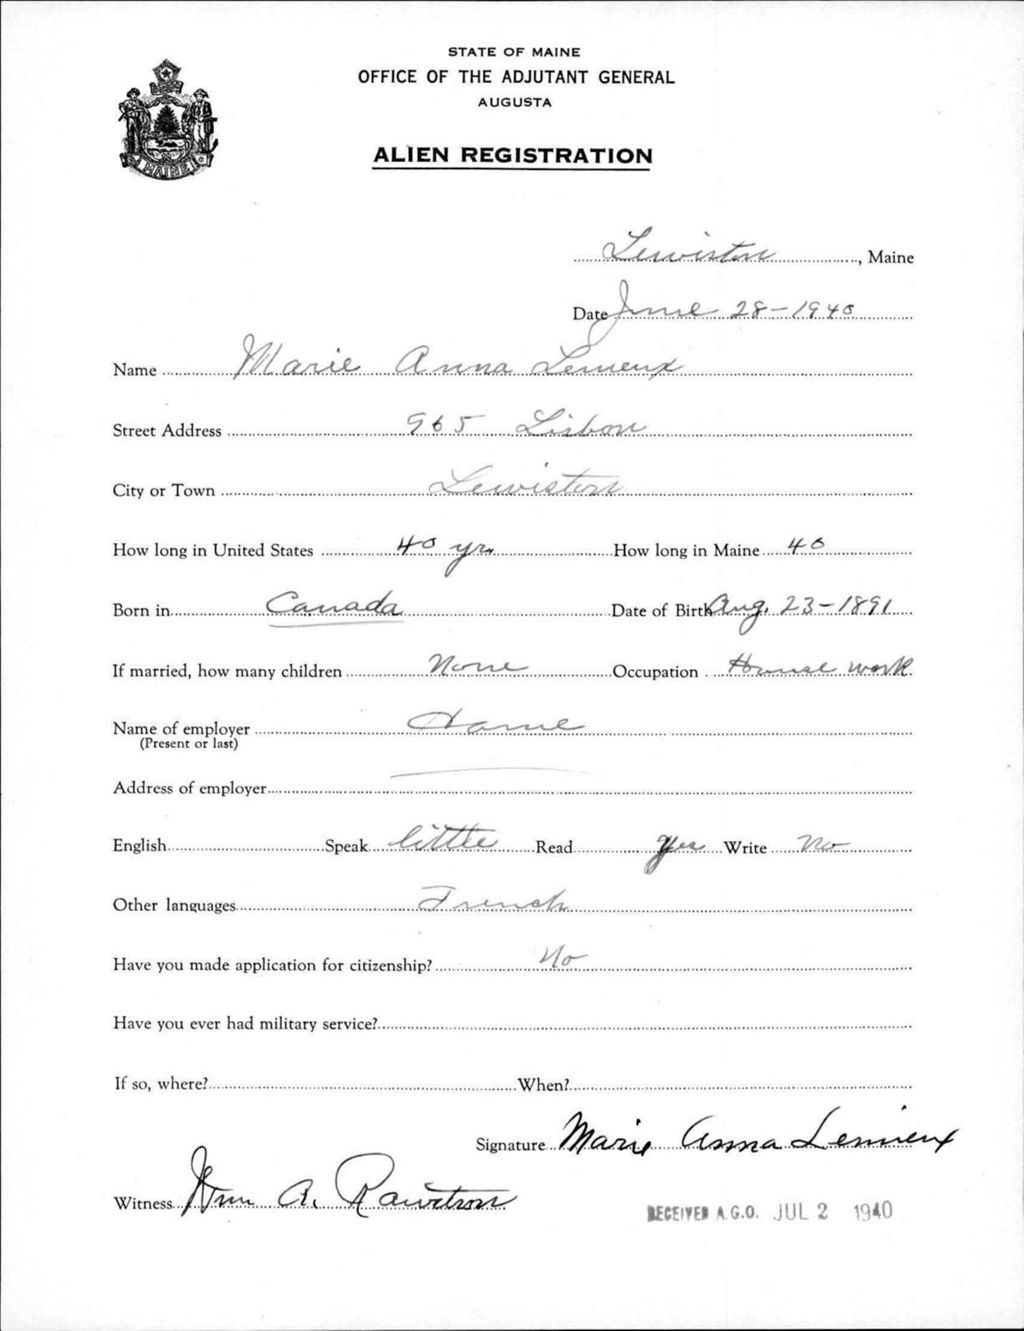 STATE OF MAINE
OFFICE OF THE ADJUTANT GENERAL
AUGUSTA
ALIEN REGISTRATION
MAINE
Lewiston, Maine
Date June 28-1940
Name Marie Anna Lemieux
Street Address 965 Lisbon
City or Town Lewiston
How long in United States 40 yr. How long in Maine 40
Born in Canada Date of Birth Aug. 23-1891
If married, how many children None Occupation House work
Name of employer Home
(Present or last)
Address of employer
English Speak little Read Yes Write No
Other languages French
Have you made application for citizenship? No
Have you ever had military service?
If so, where? When?
Signature Marie Anna Lemieux
Witness Wm A.
RECEIVED A.G.O. JUL 2 1940